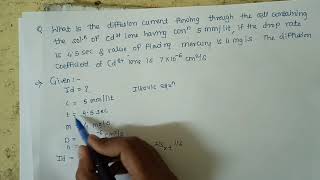 Q. What is the diffusion current flowing through the cell containing
the solⁿ of Cd²⁺ ions having concⁿ 5 mmol/lit, if the drop rate
is 4.5 sec & value of flowing mercury is 4 mg/s. The diffusion
coefficient of Cd²⁺ ions is 7×10⁻⁶ cm²/s
→ Given :-
Id = ?
Ilkovic eqnⁿ
C = 5 mmol/lit
t = 4.5 sec
m mg/s
D cm²/s
n
Id =